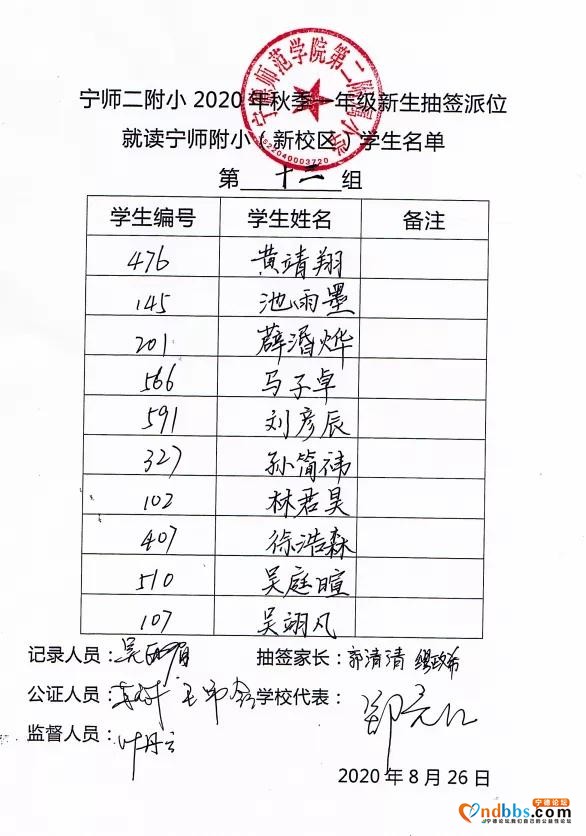 宁师范学院第二附属小学
宁师二附小 2020 年秋季一年级新生抽签派位
就读宁师附小（新校区）学生名单
3522040003720
第 十二 组
学生编号 学生姓名 备注
476 黄靖翔
145 池雨墨
201 薛湣烨
566 马子卓
591 刘彦辰
327 孙简祎
102 林君昊
407 徐浩森
510 吴庭暄
107 吴翊凡
记录人员： 抽签家长：郭清清
公证人员： 学校代表：
监督人员：叶丹云
2020 年 8 月 26 日
宁德论坛
ndbbs.com
宁德论坛,我们自己的公益性论坛